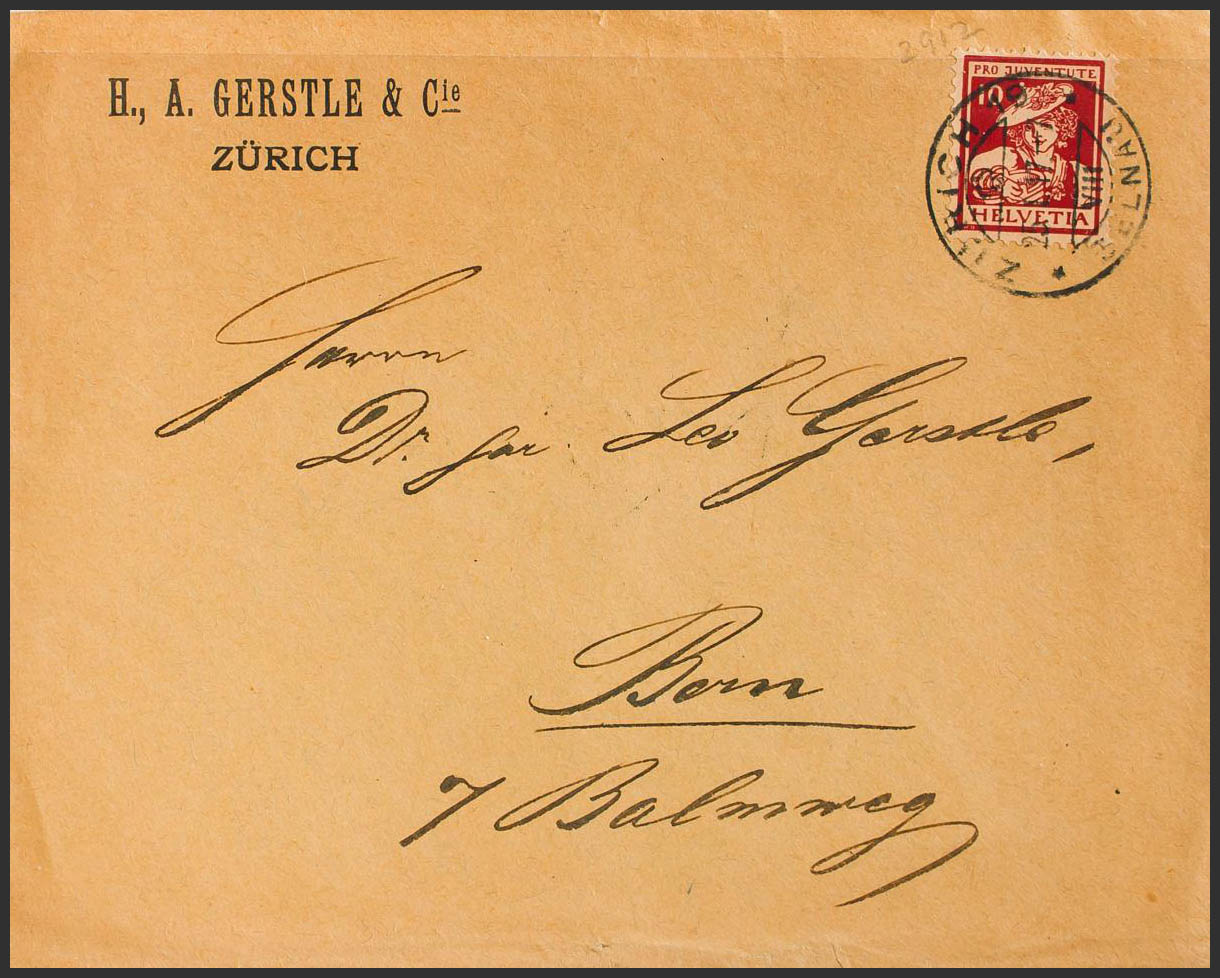 H., A. GERSTLE & Cie
ZÜRICH
2912
PRO JUVENTUTE
10
HELVETIA
ZÜRICH 19
VIII
Herrn
Dr. jur. Leo Gerstle,
Bern
7 Balmweg